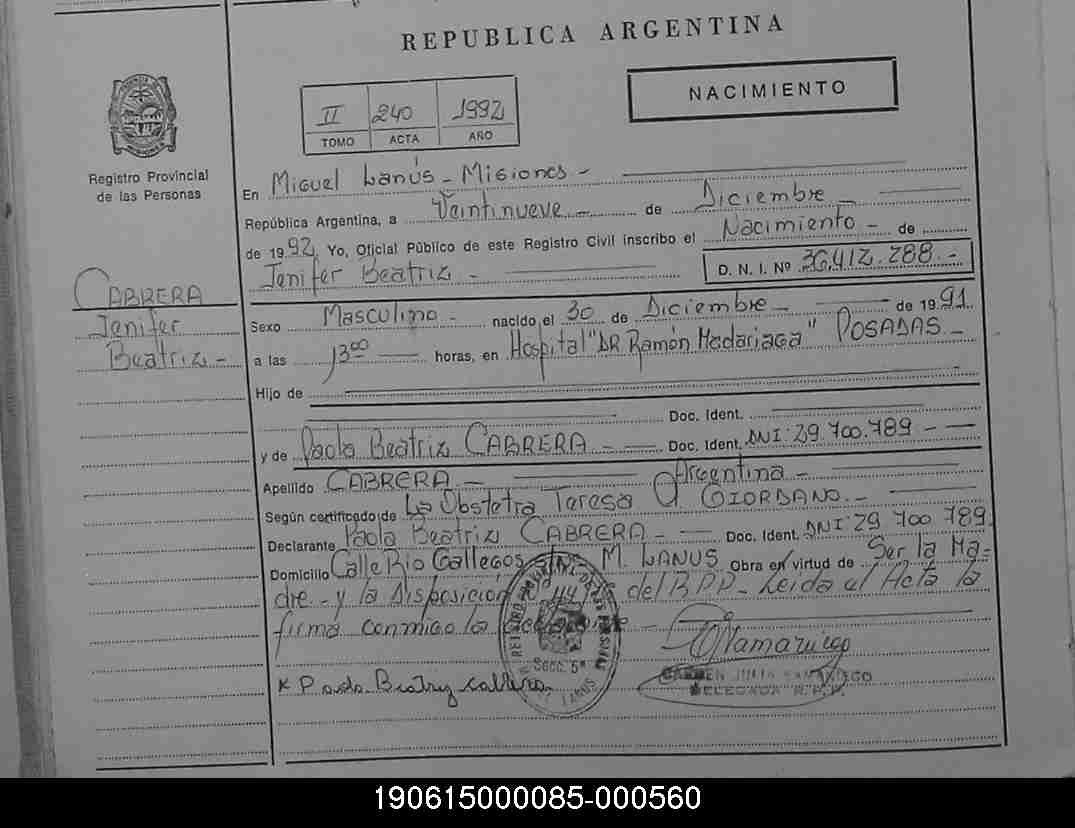 REPUBLICA ARGENTINA
NACIMIENTO
II 240 1992
TOMO ACTA AÑO
Registro Provincial
de las Personas
En Miguel Lanús - Misiones -
República Argentina, a Veintinueve - de Diciembre -
de 1992 Yo, Oficial Público de este Registro Civil inscribo el Nacimiento - de
Jenifer Beatriz - D. N. I. Nº 36.412.288.-
CABRERA
Jenifer
Beatriz -
Sexo Masculino - nacido el 30 de Diciembre - de 1991.
a las 13:00 horas, en Hospital "DR. Ramón Madariaga" POSADAS -
Hijo de
Doc. Ident.
y de Paola Beatriz CABRERA - Doc. Ident. DNI: 29.700.789 - -
Apellido CABRERA. - Argentina -
Según certificado de La Obstetra Teresa GIORDANO. -
Declarante Paola Beatriz CABRERA - Doc. Ident. DNI: 29 700 789.
Domicilio Calle Rio Gallegos M. LANUS Obra en virtud de Ser la Ma=
dre - y la Disposición del R.P.P - Leida el Acta la
firma conmigo la
Secc. 5ª
LANUS
x Paola Beatriz Cabrera
CARMEN JULIA SAMANIEGO
DELEGADA R.P.P.
190615000085-000560